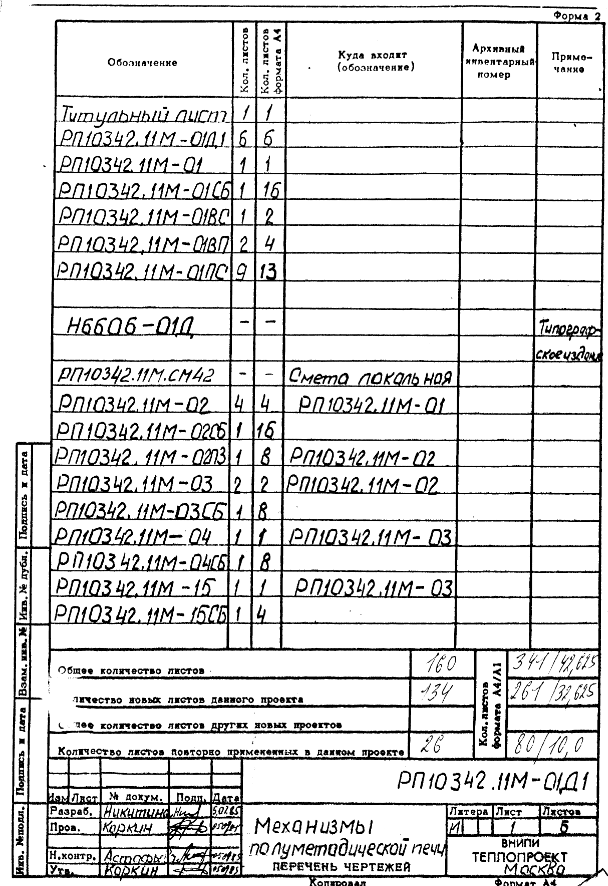 Форма 2
Обозначение Кол. листов Кол. листов формата А4 Куда входит (обозначение) Архивный инвентарный номер Приме-чание
Титульный лист 1 1
РП10342.11М-01Д1 6 6
РП10342.11М-01 1 1
РП10342.11М-01СБ 1 16
РП10342.11М-01ВС 1 2
РП10342.11М-01ВП 2 4
РП10342.11М-01ПС 9 13
Н6606-01Д - - Типограф-
ское издание
РП10342.11М.СМ42 - - Смета локальная
РП10342.11М-02 4 4 РП10342.11М-01
РП10342.11М-02СБ 1 16
РП10342.11М-02ПЗ 1 8 РП10342.11М-02
РП10342.11М-03 2 2 РП10342.11М-02
РП10342.11М-03СБ 1 8
РП10342.11М-04 1 1 РП10342.11М-03
РП10342.11М-04СБ 1 8
РП10342.11М-15 1 1 РП10342.11М-03
РП10342.11М-15СБ 1 4
Общее количество листов 160 341/42,625
личество новых листов данного проекта 134 261/32,625
щее количество листов других новых проектов
Количество листов повторно примененных в данном проекте 26 80/10,0
Кол. листов формата А4/А1
РП10342.11М-01Д1
Изм Лист № докум. Подп. Дата
Разраб. Никитина
Пров. Коркин
Н.контр.
Утв. Коркин
Механизмы
полуметодической печи
ПЕРЕЧЕНЬ ЧЕРТЕЖЕЙ
Литера Лист Листов
И 1 5
ВНИПИ
ТЕПЛОПРОЕКТ
Москва
Копировал Формат А4
Подпись и дата
Инв. № дубл.
Взам. инв. №
Подпись и дата
Инв. № подл.